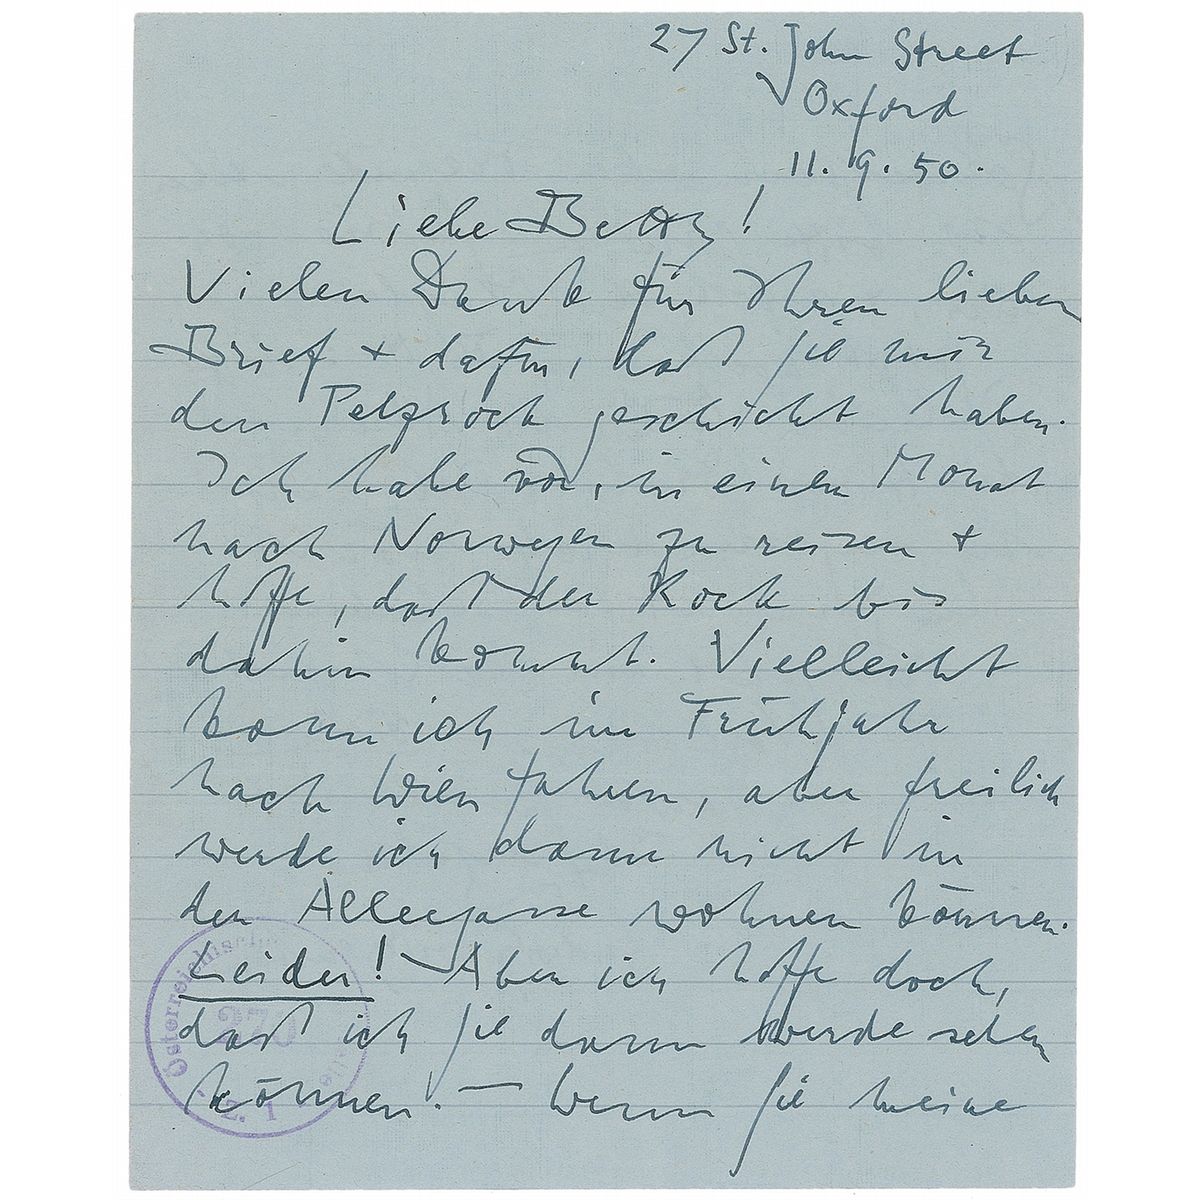 27 St. John Street
Oxford
11. 9. 50.
Liebe Betty!
Vielen Dank für Ihren lieben
Brief + dafür, daß Sie mir
den Pelzrock geschickt haben.
Ich habe vor, in einem Monat
nach Norwegen zu reisen +
hoffe, daß der Rock bis
dahin kommt. Vielleicht
kann ich im Frühjahr
nach Wien fahren, aber freilich
werde ich dann nicht in
der Alleegasse wohnen können.
Leider! – Aber ich hoffe doch,
daß ich Sie dann werde sehen
können. – Wenn Sie meine
Österreichische